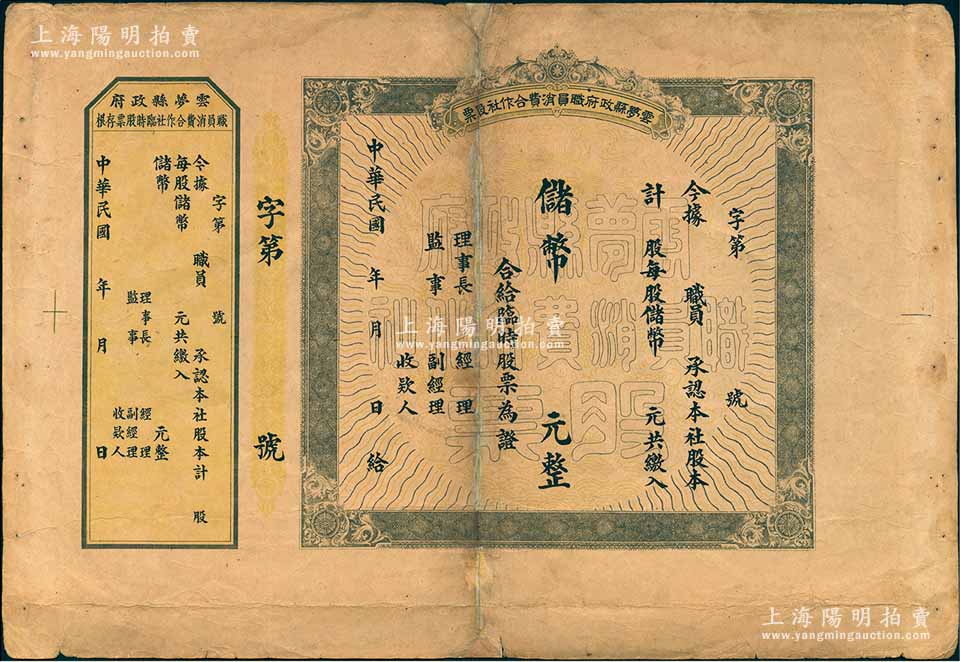 上海陽明拍賣
www.yangmingauction.com
雲夢縣政府職員消費合作社股票
字第 號
今據 職員 承認本社股本
計 股每股儲幣 元共繳入
儲幣 元整
合給臨時股票為證
理事長 經理
監事 副經理
收款人
中華民國 年 月 日給
雲夢縣政府
職員消費合作社
股票
字第 號
雲夢縣政府
職員消費合作社臨時股票存根
字第 號
今據 職員 承認本社股本計 股
每股儲幣 元共繳入
儲幣 元整
理事長 經理
監事 副經理
收款人
中華民國 年 月 日
上海陽明拍賣
www.yangmingauction.com
上海陽明拍賣
www.yangmingauction.com